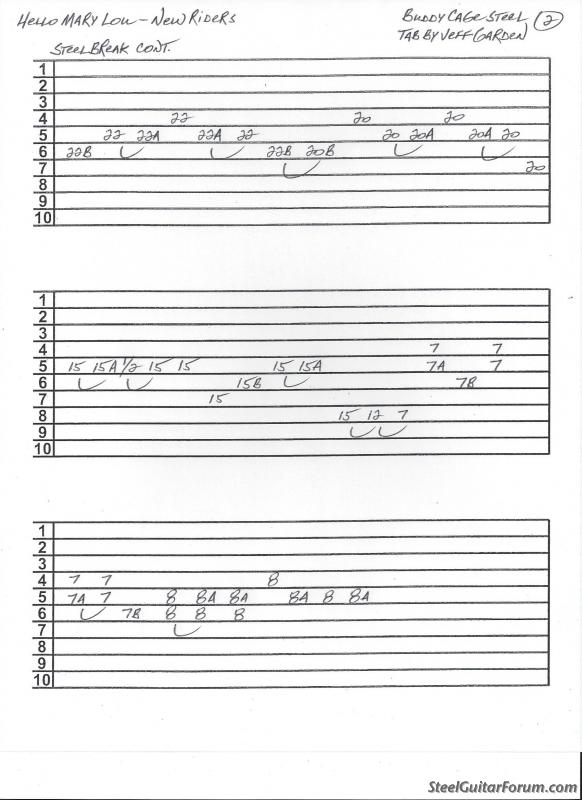 Hello Mary Lou - New Riders
Buddy Cage Steel ②
Tab by Jeff Garden
Steel Break Cont.
1
2
3
4 22 20 20
5 22 22A 22A 22 20 20A 20A 20
6 22B 22B 20B
7 20
8
9
10
1
2
3
4 7 7
5 15 15A 1/2 15 15 15 15A 7A 7
6 15B 7B
7 15
8 15 12 7
9
10
1
2
3
4 7 7 8
5 7A 7 8 8A 8A 8A 8 8A
6 7B 8 8 8
7
8
9
10
SteelGuitarForum.com